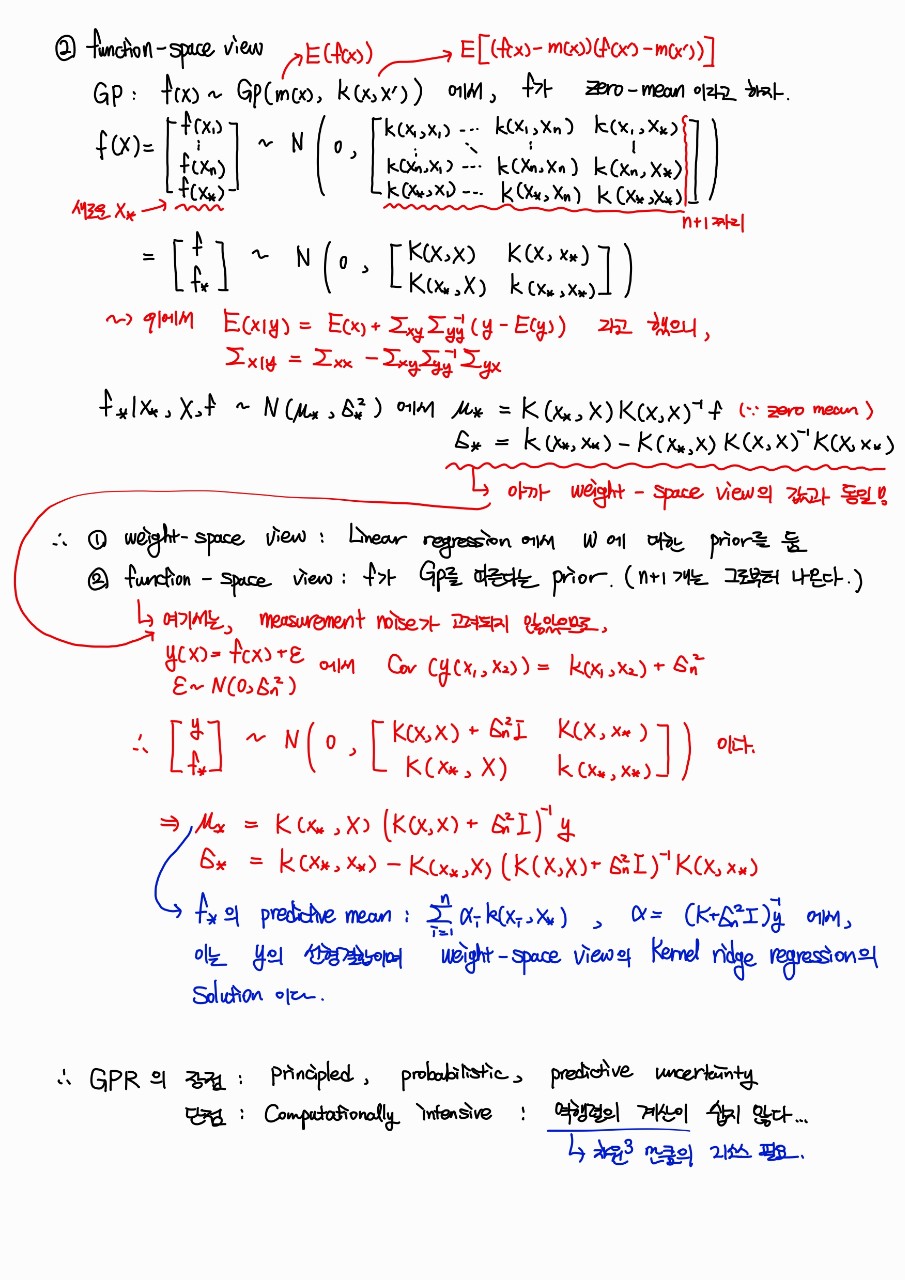 ② function-space view
E(f(x))
E[(f(x)-m(x))(f(x')-m(x'))]
GP : f(x) ~ GP(m(x), k(x,x')) 에서, f가 zero-mean 이라고 하자.
f(X) = [f(x₁) ⋮ f(xₙ) f(x*)] ~ N(0, [k(x₁,x₁) ... k(x₁,xₙ) k(x₁,x*) ⋮ ⋱ ⋮ ⋮ k(xₙ,x₁) ... k(xₙ,xₙ) k(xₙ,x*) k(x*,x₁) ... k(x*,xₙ) k(x*,x*)])
새로운 x* →
n+1 짜리
= [f f*] ~ N(0, [K(X,X) K(X,x*) K(x*,X) k(x*,x*)])
~> 위에서 E(x|y) = E(x) + Σxy Σyy⁻¹ (y - E(y)) 라고 했으니,
Σx|y = Σxx - Σxy Σyy⁻¹ Σyx
f*|x*, X, f ~ N(μ*, σ*²) 에서 μ* = K(x*,X) K(X,X)⁻¹ f (∵ zero mean)
σ* = k(x*,x*) - K(x*,X) K(X,X)⁻¹ K(X,x*)
↳ 아까 weight-space view의 값과 동일!!
∴ ① weight-space view : Linear regression 에서 w 에 대한 prior를 둠
② function-space view : f가 GP를 따른다는 prior. (n+1 개는 그로부터 나온다.)
↳ 여기서는, measurement noise가 고려되지 않았으므로,
y(x) = f(x) + ε 에서 Cov (y(x₁,x₂)) = k(x₁,x₂) + σₙ²
ε ~ N(0, σₙ²)
∴ [y f*] ~ N(0, [K(X,X) + σₙ²I K(X,x*) K(x*,X) k(x*,x*)]) 이다.
⇒ μ* = K(x*,X) (K(X,X) + σₙ²I)⁻¹ y
σ* = k(x*,x*) - K(x*,X) (K(X,X) + σₙ²I)⁻¹ K(X,x*)
↳ f* 의 predictive mean : Σᵢ₌₁ⁿ αᵢ k(xᵢ,x*) , α = (K+σₙ²I)⁻¹y 에서,
이는 y의 선형결합이며 weight-space view의 Kernel ridge regression의
Solution 이다.
∴ GPR 의 장점 : Principled, probabilistic, predictive uncertainty
단점 : Computationally intensive : 역행렬의 계산이 쉽지 않다...
↳ 차원³ 만큼의 리소스 필요.